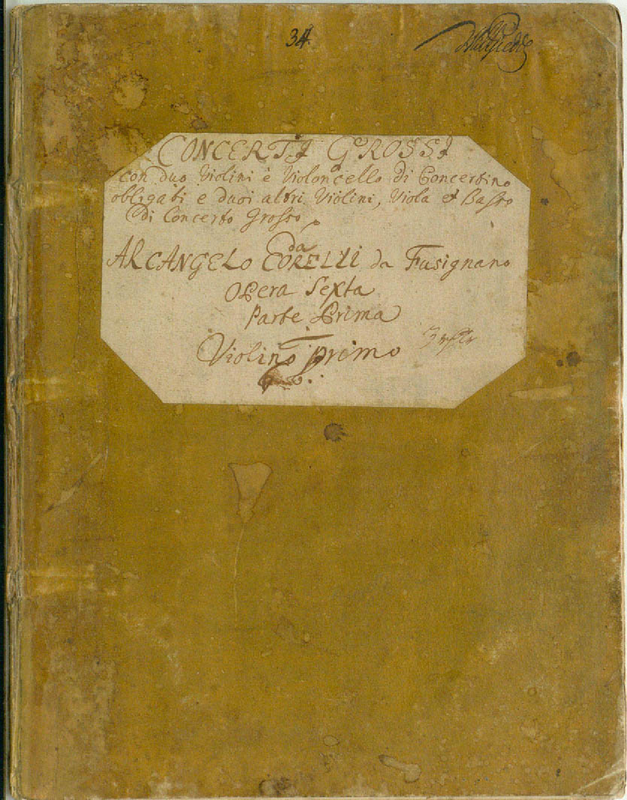 34.
CONCERTI GROSSI
con duo Violini è Violoncello di Concertino
obligati e duoi altri Violini, Viola è Basso
di Concerto Grosso
da
ARCANGELO CORELLI da Fusignano
OPera Sexta
Parte Prima
Violino primo